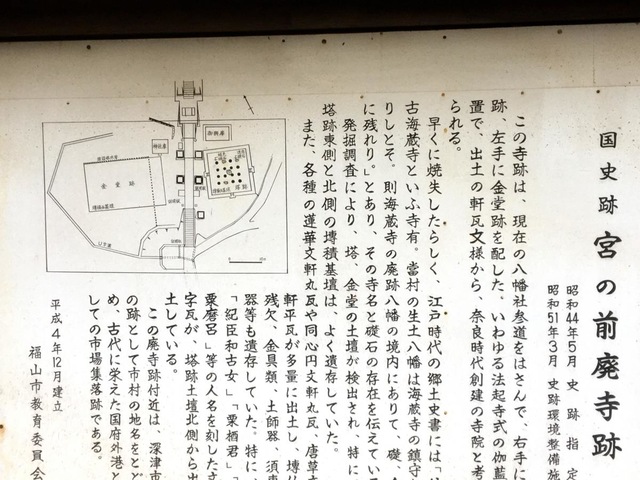 国史跡 宮の前廃寺跡
昭和44年5月 史跡指定
昭和51年3月 史跡環境整備施
この寺跡は、現在の八幡社参道をはさんで、右手に
跡、左手に金堂跡を配した、いわゆる法起寺式の伽藍
置で、出土の軒瓦文様から、奈良時代創建の寺院と考
られる。
早くに焼失したらしく、江戸時代の郷土史書には「
古海蔵寺といふ寺有。當村の生土八幡は海蔵寺の鎮守
りしとぞ。則海蔵寺の廃跡八幡の境内にありて、礎、
に残れり。」とあり、その寺名と礎石の存在を伝えてい
発掘調査により、塔、金堂の土壇が検出され、特に
塔跡東側と北側の塼積基壇は、よく遺存していた。
また、各種の蓮華文軒丸瓦や同心円文軒丸瓦、唐草
軒平瓦が多量に出土し、塼仏
残欠、金具類、土師器、須恵
器等も遺存していた。特に、
「紀臣和古女」、「粟栖君」、「
粟麿呂」等の人名を刻した文
字瓦が、塔跡土壇北側から出
土している。
この廃寺跡付近は、深津市
の跡として市村の地名をとど
め、古代に栄えた国府外港と
しての市場集落跡である。
平成4年12月建立
福山市教育委員会
御神庫
神社庫
金堂跡
塔跡